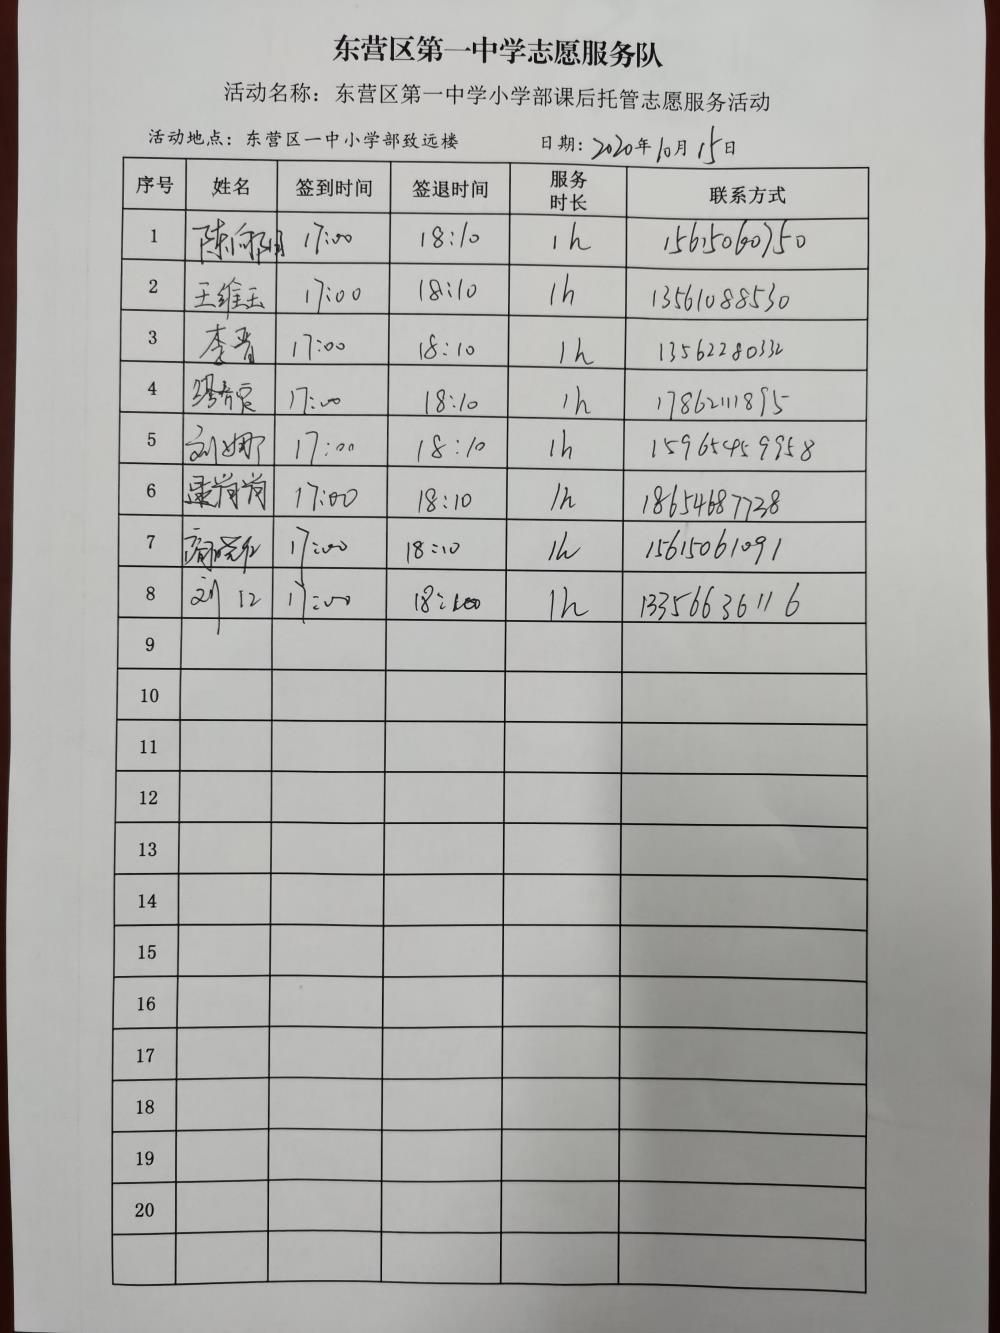 东营区第一中学志愿服务队
活动名称：东营区第一中学小学部课后托管志愿服务活动
活动地点：东营区一中小学部致远楼 日期：2020年10月15日
序号 姓名 签到时间 签退时间 服务时长 联系方式
1 陈向阳 17:00 18:10 1h 15615060750
2 王维玉 17:00 18:10 1h 13561088530
3 李晋 17:00 18:10 1h 13562280332
4 17:00 18:10 1h 17862111895
5 刘娜 17:00 18:10 1h 15965459958
6 17:00 18:10 1h 18654687738
7 17:00 18:10 1h 15615061091
8 刘 17:00 18:10 1h 13356636116
9
10
11
12
13
14
15
16
17
18
19
20